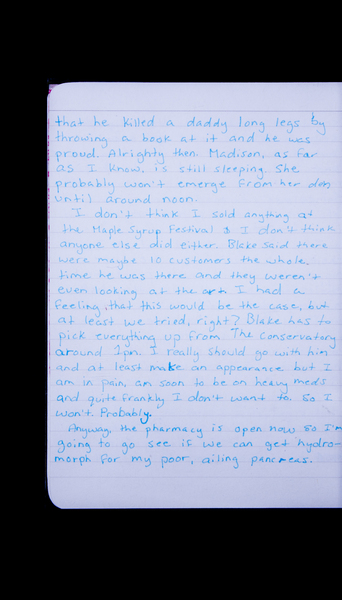 that he killed a daddy long legs by
throwing a book at it and he was
proud. Alrighty then. Madison, as far
as I know, is still sleeping. She
probably won't emerge from her den
until around noon.
I don't think I sold anything at
the Maple Syrup Festival & I don't think
anyone else did either. Blake said there
were maybe 10 customers the whole,
time he was there and they weren't
even looking at the art. I had a
feeling that this would be the case, but
at least we tried, right? Blake has to
pick everything up from The Conservatory
around 2pm. I really should go with him
and at least make an appearance but I
am in pain, am soon to be on heavy meds
and quite frankly I don't want to. So I
won't. Probably.
Anyway, the pharmacy is open now so I'm
going to go see if we can get hydro-
morph for my poor, ailing pancreas.